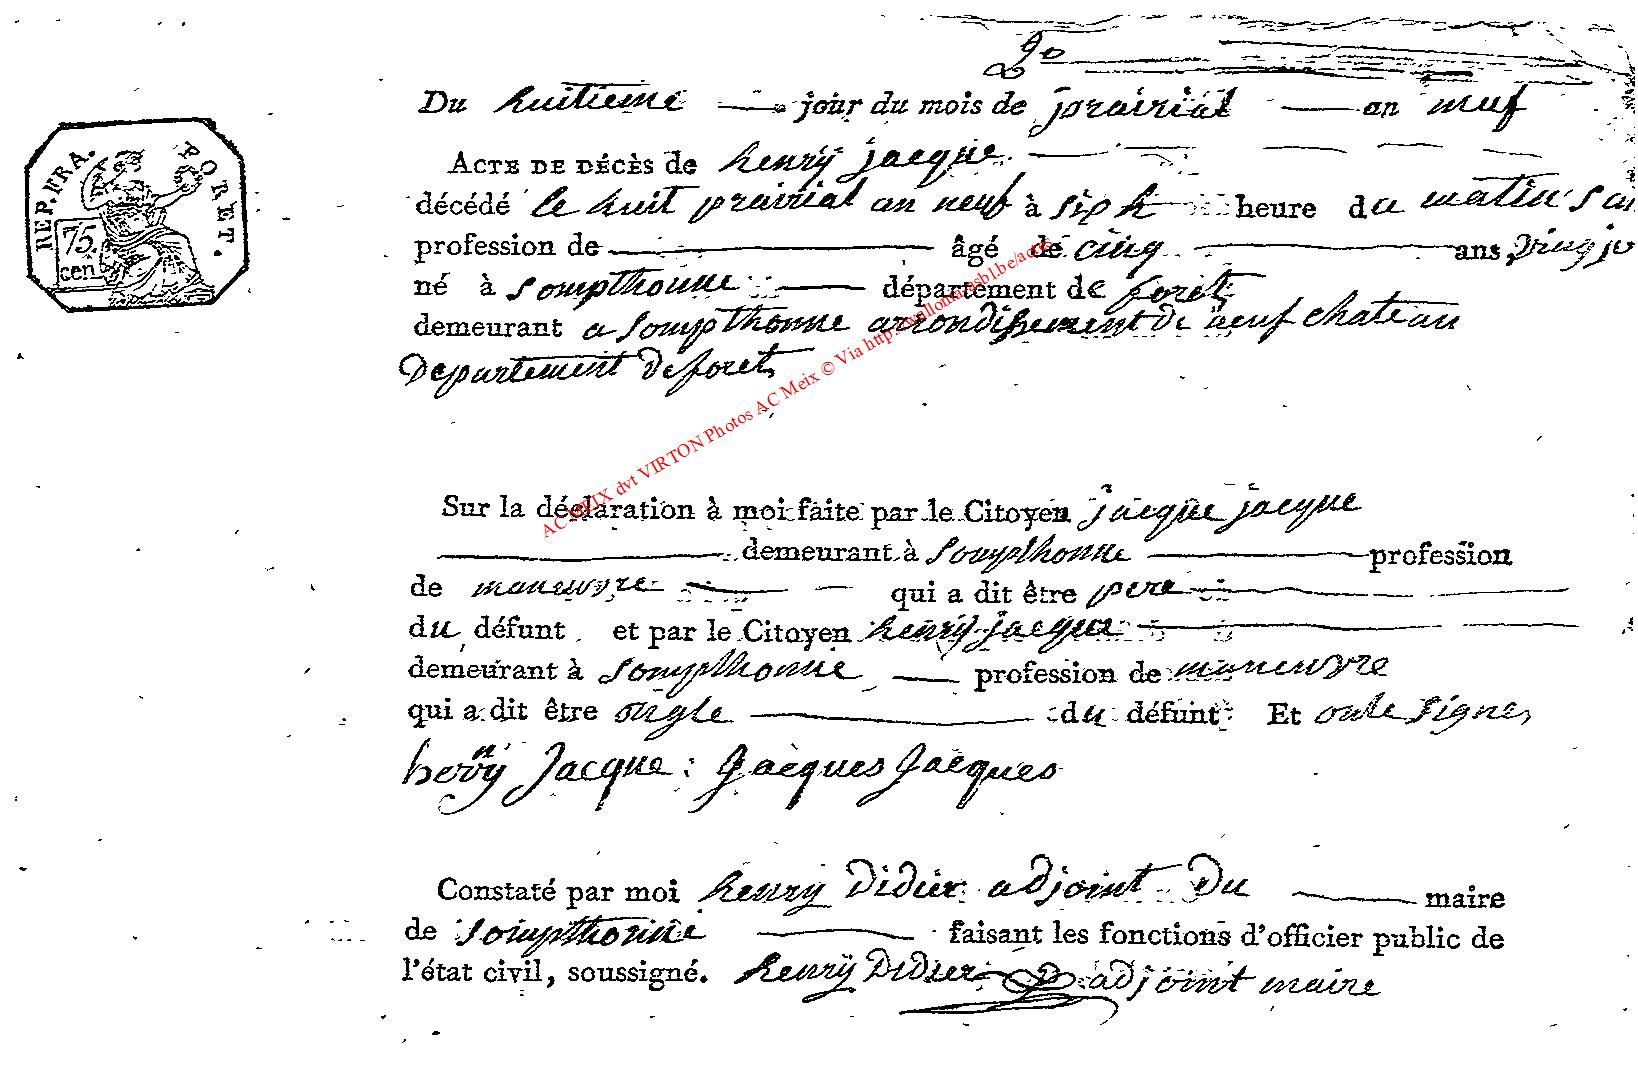 2º
Du huitieme jour du mois de prairial an neuf
REP. FRA. FORET.
75. cen.
ACTE DE DÉCÈS de henry jacque
décédé le huit prairial an neuf à six h heure du matin
profession de âgé de cinq ans
né à sompthonne département de foret
demeurant a sompthonne arrondissement de neuf chateau
Departement de foret
AC MEIX dvt VIRTON Photos AC Meix © Via http://
Sur la déclaration à moi faite par le Citoyen jacque jacque
demeurant à sompthonne profession
de maneuvre qui a dit être pere
du défunt et par le Citoyen henry jacque
demeurant à sompthonne profession de maneuvre
qui a dit être ongle du défunt Et onte signes
henry Jacque : Jacques Jacques
Constaté par moi henry Didier adjoint Du maire
de sompthonne faisant les fonctions d'officier public de
l'état civil, soussigné. henry Didier adjoint maire